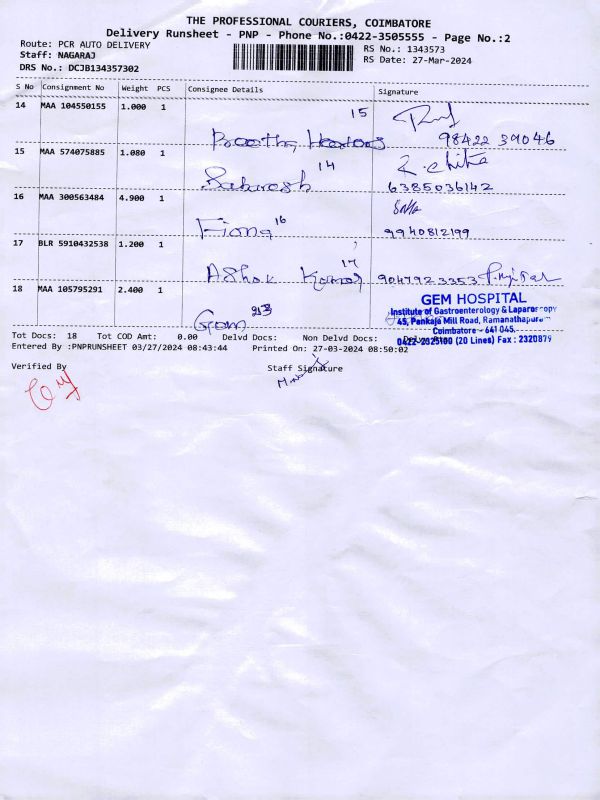 THE PROFESSIONAL COURIERS, COIMBATORE
Delivery Runsheet - PNP - Phone No.:0422-3505555 - Page No.:2
Route: PCR AUTO DELIVERY
RS No.: 1343573
Staff: NAGARAJ
RS Date: 27-Mar-2024
DRS No.: DCJB134357302
S No Consignment No Weight PCS Consignee Details Signature
14 MAA 104550155 1.000 1 15
98422 39046
15 MAA 574075885 1.080 1 14
6385036142
16 MAA 300563484 4.900 1 16
Fiona
9940812199
17 BLR 5910432538 1.200 1 17
AShok Kumar 9047923353
18 MAA 105795291 2.400 1
GEM HOSPITAL
Institute of Gastroenterology & Laparoscopy
45, Pankaja Mill Road, Ramanathapuram
Coimbatore - 641 045.
0422-2325100 (20 Lines) Fax : 2320879
Tot Docs: 18 Tot COD Amt: 0.00 Delvd Docs: Non Delvd Docs:
Entered By :PNPRUNSHEET 03/27/2024 08:43:44 Printed On: 27-03-2024 08:50:02
Verified By Staff Signature